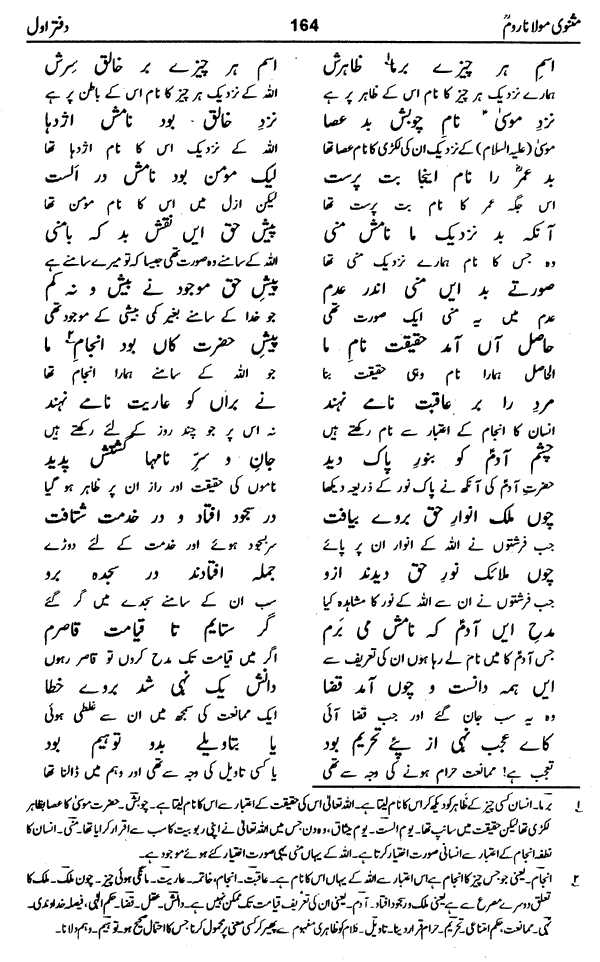 مثنوی مولانا رومؒ 164 دفتر اول
اسمِ ہر چیزے برما۱ ظاہرش اسم ہر چیزے بر خالق سِرش
ہمارے نزدیک ہر چیز کا نام اس کے ظاہر پر ہے اللہ کے نزدیک ہر چیز کا نام اس کے باطن پر ہے
نزدِ موسیٰؑ نامِ چوبش بد عصا نزدِ خالق بود نامش اژدہا
موسیٰ (علیہ السلام) کے نزدیک ان کی لکڑی کا نام عصا تھا اللہ کے نزدیک اس کا نام اژدہا تھا
بد عمرؓ را نام اینجا بت پرست لیک مؤمن بود نامش در الست
اس جگہ عمر کا نام بت پرست تھا لیکن ازل میں اس کا نام مومن تھا
آنکہ بد نزدیک ما نامش منی پیشِ حق ایں نقش بد کہ بامنی
وہ جس کا نام ہمارے نزدیک منی تھا اللہ کے سامنے وہ صورت تھی جیسا کہ تو میرے سامنے ہے
صورتے بد ایں منی اندر عدم پیشِ حق موجود نے بیش و نہ کم
عدم میں یہ منی ایک صورت تھی جو خدا کے سامنے بغیر کمی بیشی کے موجود تھی
حاصل آں آمد حقیقت نامِ ما پیشِ حضرت کاں بود انجام۲ ما
الحاصل ہمارا نام وہی حقیقت بنا جو اللہ کے سامنے ہمارا انجام تھا
مرد را بر عاقبت نامے نہند نے براں کو عاریت نامے نہند
انسان کا انجام کے اعتبار سے نام رکھتے ہیں نہ اس پر جو چند روز کے لئے رکھتے ہیں
چشمِ آدمؑ کو بنورِ پاک دید جان و سرِّ نامہا گشتش پدید
حضرتِ آدمؑ کی آنکھ نے پاک نور کے ذریعہ دیکھا ناموں کی حقیقت اور راز ان پر ظاہر ہو گیا
چوں ملک انوارِ حق بروے بیافت در سجود افتاد و در خدمت شتافت
جب فرشتوں نے اللہ کے انوار ان پر پائے سربسجود ہوئے اور خدمت کے لئے دوڑے
چوں ملائک نورِ حق دیدند ازو جملہ افتادند در سجدہ برو
جب فرشتوں نے ان سے اللہ کے نور کا مشاہدہ کیا سب ان کے سامنے سجدے میں گر گئے
مدحِ ایں آدمؑ کہ نامش می بَرم گر ستایم تا قیامت قاصرم
جس آدمؑ کا میں نام لے رہا ہوں ان کی تعریف سے اگر میں قیامت تک مدح کروں تو قاصر رہوں
ایں ہمہ دانست و چوں آمد قضا دانش یک نہی شد بروے خطا
وہ یہ سب جان گئے اور جب قضا آئی ایک ممانعت کی سمجھ میں ان سے غلطی ہوئی
کاے عجب نہی از پئے تحریم بود یا بتاویلے بدو توہیم بود
تعجب ہے! ممانعت حرام ہونے کی وجہ سے تھی یا کسی تاویل کی وجہ سے تھی اور وہم میں ڈالنا تھا
۱ برما۔ انسان کسی چیز کے ظاہر کو دیکھ کر اس کا نام لیتا ہے۔ اللہ تعالیٰ اس کی حقیقت کے اعتبار سے اس کا نام لیتا ہے۔ چوبش۔ حضرت موسیٰ کا عصا بظاہر
لکڑی تھا لیکن حقیقت میں سانپ تھا۔ یوم الست۔ یوم میثاق، وہ دن جس میں اللہ تعالیٰ نے اپنی ربوبیت کا سب سے اقرار کرایا تھا۔ منی۔ انسان کا
نطفہ انجام کے اعتبار سے انسانی صورت اختیار کرتا ہے۔ اللہ کے یہاں منی یہی صورت اختیار کئے ہوئے موجود ہے۔
۲ انجام۔ یعنی جو جس چیز کا انجام ہے اس اعتبار سے اللہ کے یہاں اس کا نام ہے۔ عاقبت۔ انجام، خاتمہ۔ عاریت۔ مانگی ہوئی چیز۔ چوں ملک۔ ملک کا
تعلق دوسرے مصرع سے ہے یعنی ملک در سجود افتاد۔ آدم۔ یعنی ان کی تعریف قیامت تک ممکن نہیں ہے۔ دانش۔ عقل۔ قضا۔ حکم الٰہی، فیصلہ خداوندی۔
نہی۔ ممانعت، حکم امتناعی۔ تحریم۔ حرام قرار دینا۔ تاویل۔ کلام کو ظاہری مفہوم سے پھیر کر کسی معنی پر محمول کرنا جس کا احتمال صحیح ہو۔ توہیم۔ وہم دلانا۔